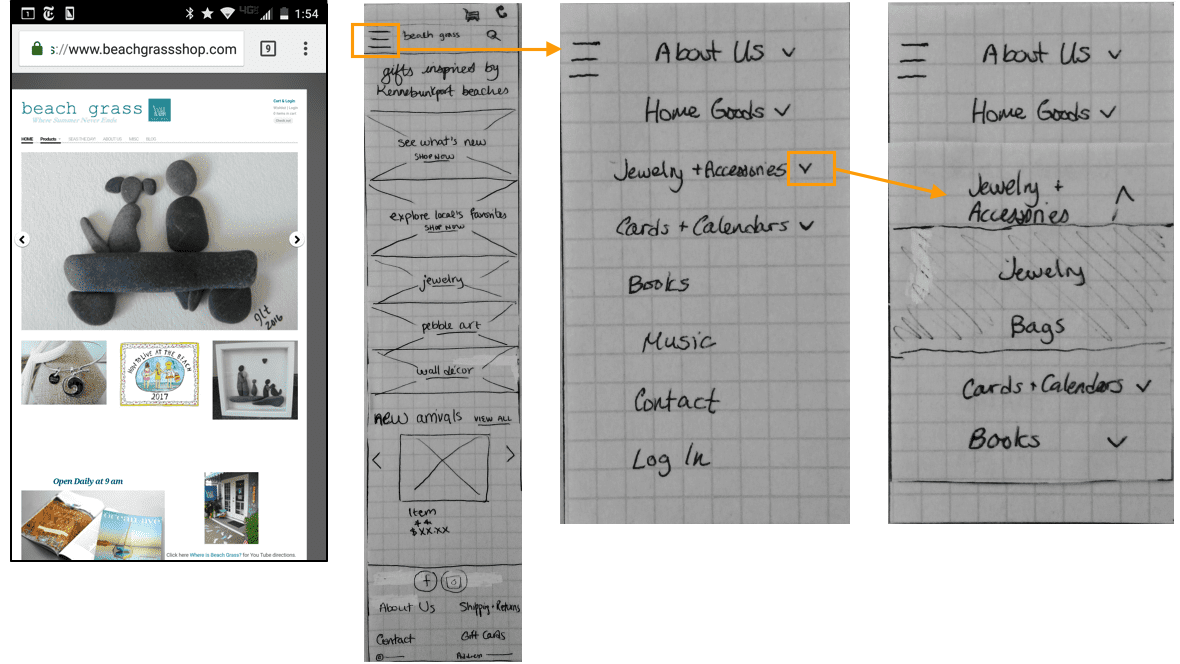 1:54
4G
s://www.beachgrassshop.com
9
beach grass
Where Summer Never Ends
Cart & Login
HOME Products BEAD THE DAY ABOUT US MISC BLOG
HOW TO LIVE AT THE BEACH
2017
2016
Open Daily at 9 am
ocean
Click here Where is Beach Grass? for You Tube directions.
beach grass
gifts inspired by
Kennebunkport beaches
see what's new
SHOP NOW
explore local's favorites
SHOP NOW
jewelry
pebble art
wall décor
new arrivals VIEW ALL
Item
$XX.XX
About Us Shipping + Returns
Contact Gift Cards
Address
About Us
Home Goods
Jewelry + Accessories
Cards + Calendars
Books
Music
Contact
Log In
About Us
Home Goods
Jewelry +
Accessories
Jewelry
Bags
Cards + Calendars
Books